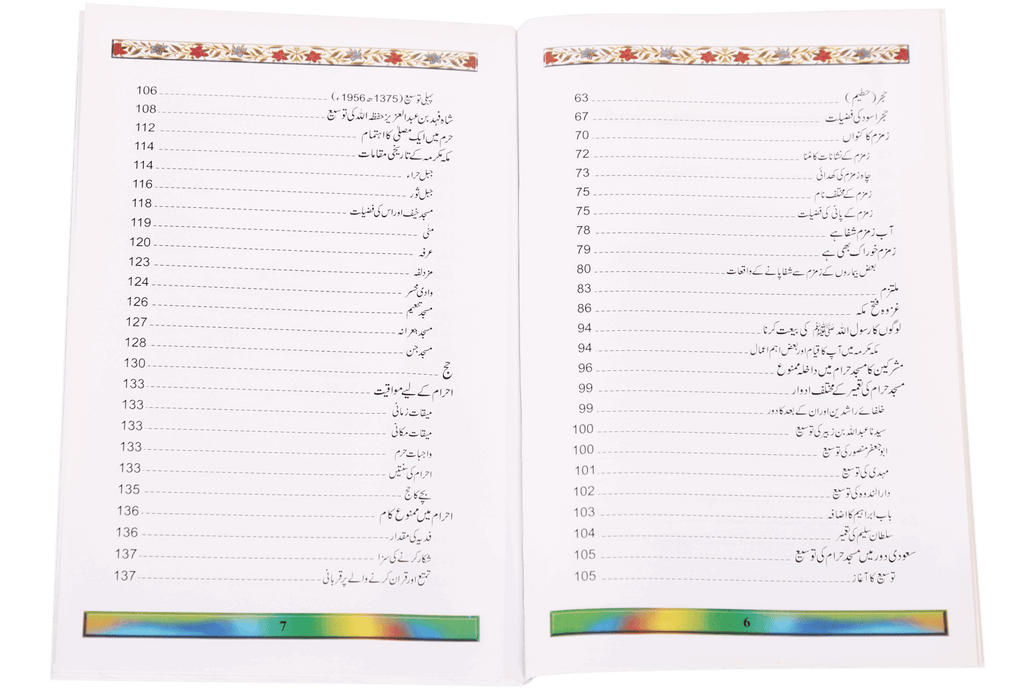 حجر (حطیم) 63
حجر اسود کی فضیلت 67
زمزم کا کنواں 70
زمزم کے نشانات کا مٹنا 72
چاہ زمزم کی کھدائی 73
زمزم کے مختلف نام 75
زمزم کے پانی کی فضیلت 75
آب زمزم شفا ہے 78
زمزم خوراک بھی ہے 79
بعض بیماروں کے زمزم سے شفا پانے کے واقعات 80
ملتزم 83
غزوہ فتح مکہ 86
لوگوں کا رسول اللہ ﷺ کی بیعت کرنا 94
مکہ مکرمہ میں آپ کا قیام اور بعض اہم اعمال 94
مشرکین کا مسجد حرام میں داخلہ ممنوع 96
مسجد حرام کی تعمیر کے مختلف ادوار 99
خلفائے راشدین اور ان کے بعد کا دور 99
سیدنا عبداللہ بن زبیر کی توسیع 100
ابو جعفر منصور کی توسیع 100
مہدی کی توسیع 101
دارالندوہ کی توسیع 102
باب ابراہیم کا اضافہ 103
سلطان سلیم کی تعمیر 104
سعودی دور میں مسجد حرام کی توسیع 105
توسیع کا آغاز 105
6
پہلی توسیع (1375ھ 1956ء) 106
شاہ فہد بن عبدالعزیز حفظہ اللہ کی توسیع 108
حرم میں ایک مصلّٰی کا اہتمام 112
مکہ مکرمہ کے تاریخی مقامات 114
جبل حراء 114
جبل ثور 116
مسجد خیف اور اس کی فضیلت 118
منٰی 119
عرفہ 120
مزدلفہ 123
وادی محسر 124
مسجد تنعیم 126
مسجد جعرانہ 127
مسجد جن 128
حج 130
احرام کے لیے مواقیت 133
میقات زمانی 133
میقات مکانی 133
واجبات حرم 133
احرام کی سنتیں 133
بچے کا حج 135
احرام میں ممنوع کام 136
فدیہ کی مقدار 136
شکار کرنے کی سزا 137
تمتع اور قران کرنے والے پر قربانی 137
7